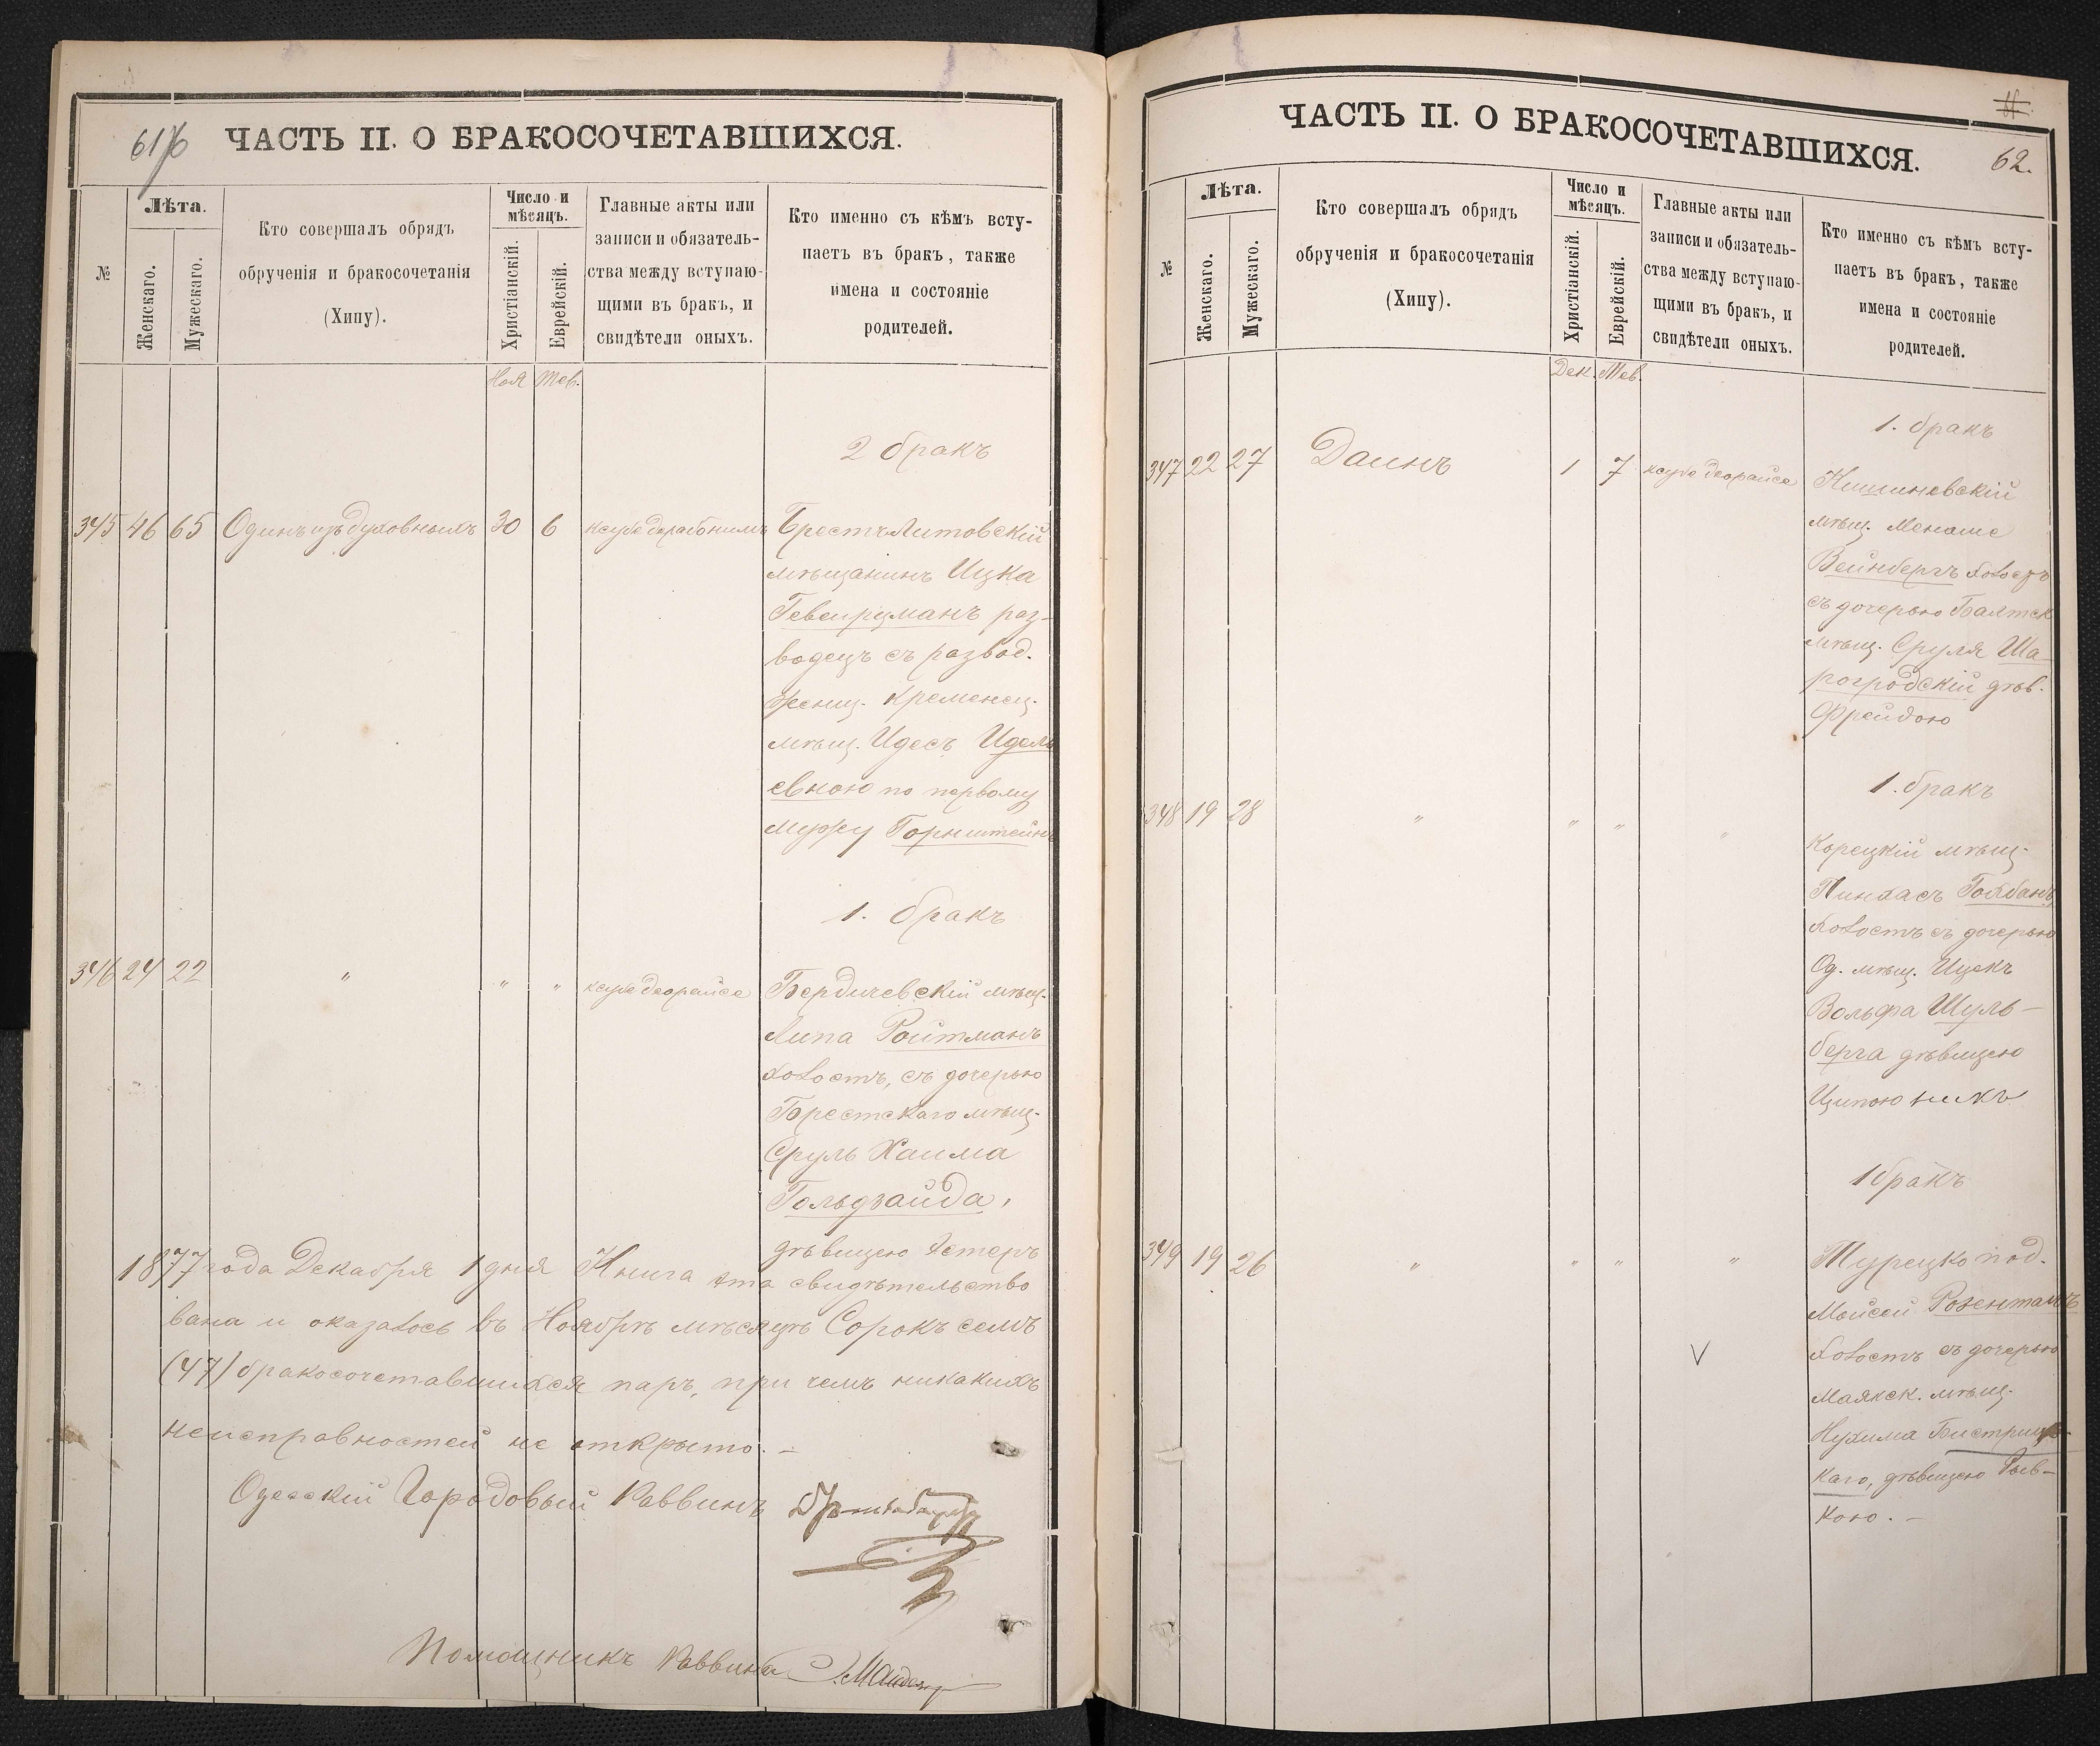 61 76
ЧАСТЬ II. О БРАКОСОЧЕТАВШИХСЯ.
№
Лѣта.
Женскаго.
Мужескаго.
Кто совершалъ обрядъ
обрученія и бракосочетанія
(Хипу).
Число и
мѣсяцъ.
Христіанскій.
Еврейскій.
Главные акты или
записи и обязатель-
ства между вступаю-
щими въ бракъ, и
свидѣтели оныхъ.
Кто именно съ кѣмъ всту-
паетъ въ бракъ, также
имена и состояніе
родителей.
Ноя Тев.
2 бракъ
345 46 65 Одинъ изъ духовныхъ 30 6 ксубе дерабонимъ Брестъ Литовскій
мѣщанинъ Ицка
раз-
водецъ съ развод.
жениц. Кременец.
мѣщ. Идесъ Идель
евною по первому
мужу Горнштейнъ
1. бракъ
346 24 22 " " " ксубе деорайсе Бердичевскій мѣщ.
Липа Ройтманъ
холостъ, съ дочерью
Брестскаго мѣщ.
Сруль Хаима
Гольдфайда,
дѣвицею Эстеръ
1877 года Декабря 1 дня Книга эта свидѣтельство
вана и оказалось въ Ноябрѣ мѣсяцѣ Сорокъ семь
(47) бракосочетавшихся паръ, при чемъ никакихъ
неисправностей не открыто. —
Одесскій Городовый Раввинъ
Помощникъ Раввина
ЧАСТЬ II. О БРАКОСОЧЕТАВШИХСЯ.
62.
№
Лѣта.
Женскаго.
Мужескаго.
Кто совершалъ обрядъ
обрученія и бракосочетанія
(Хипу).
Число и
мѣсяцъ.
Христіанскій.
Еврейскій.
Главные акты или
записи и обязатель-
ства между вступаю-
щими въ бракъ, и
свидѣтели оныхъ.
Кто именно съ кѣмъ всту-
паетъ въ бракъ, также
имена и состояніе
родителей.
Дек. Тев.
1. бракъ
347 22 27 Даинъ 1 7 ксубе деорайсе Кишиневскій
мѣщ. Менаше
Вейнбергъ холостъ
съ дочерью Балтск
мѣщ. Сруля Ша-
рогродскій дѣв.
Фрейдою
1. бракъ
348 19 28 " " " " Корецкій мѣщ.
Пинхасъ Гойхбанъ
холостъ съ дочерью
Од. мѣщ. Ицекъ
Вольфа Шуль-
берга дѣвицею
Ципою
1 бракъ
349 19 26 " " " " Турецко под.
Мойсей Розенталь
V
холостъ съ дочерью
Маякск. мѣщ.
Нухима Бистриц-
каго, дѣвицею Рив-
кою. —